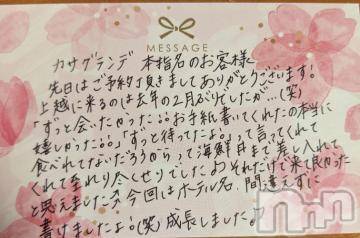 MESSAGE
カサグランデ 本指名のお客様
先日はご予約頂きましてありがとうございます!
上越に来るのは去年の2月ぶりでしたが…(笑)
「ずっと会いたかった」お手紙書いてくれたの本当に
嬉しかった「ずっと待ってたよ」って言ってくれて
食べれてないだろうからって海鮮丼まで差し入れて
くれて至れり尽くせりでした♪それだけで来て良かった
と思えました 今回はホテル名、間違えずに
書けましたよ!(笑)成長しました♪